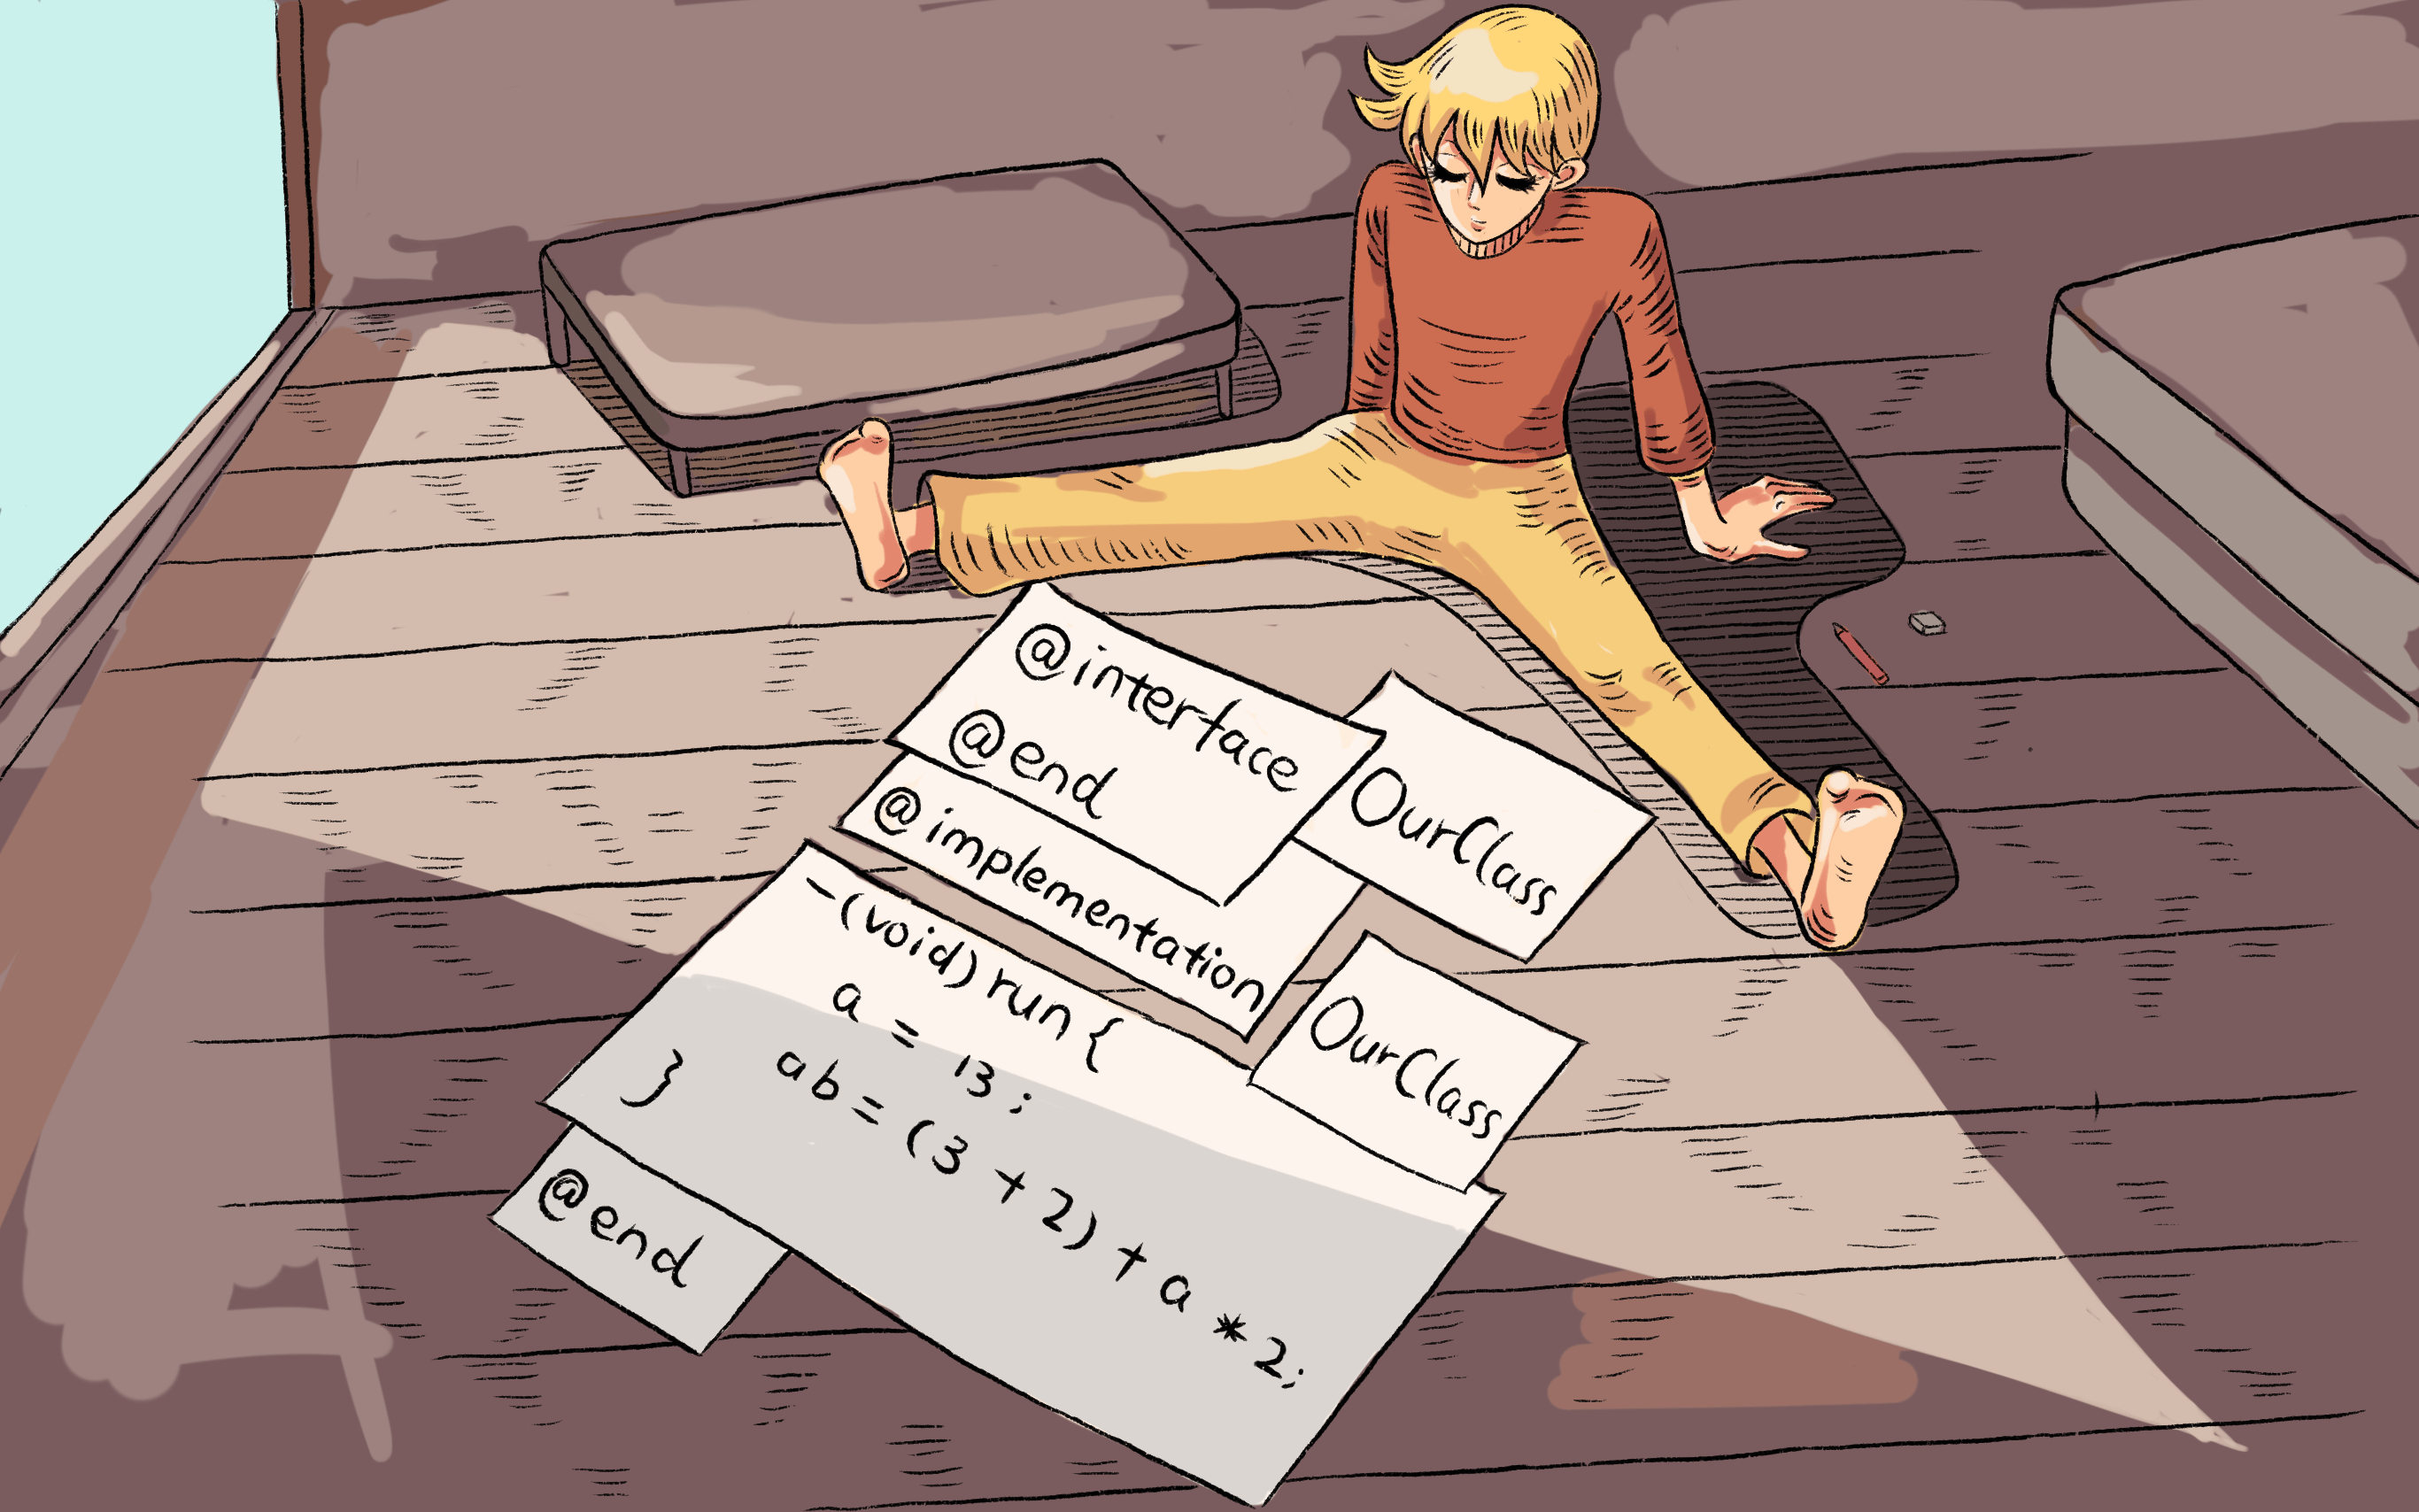 @interface OurClass
@end
@implementation OurClass
-(void) run {
a = 13;
ab = (3 + 2) + a * 2;
}
@end